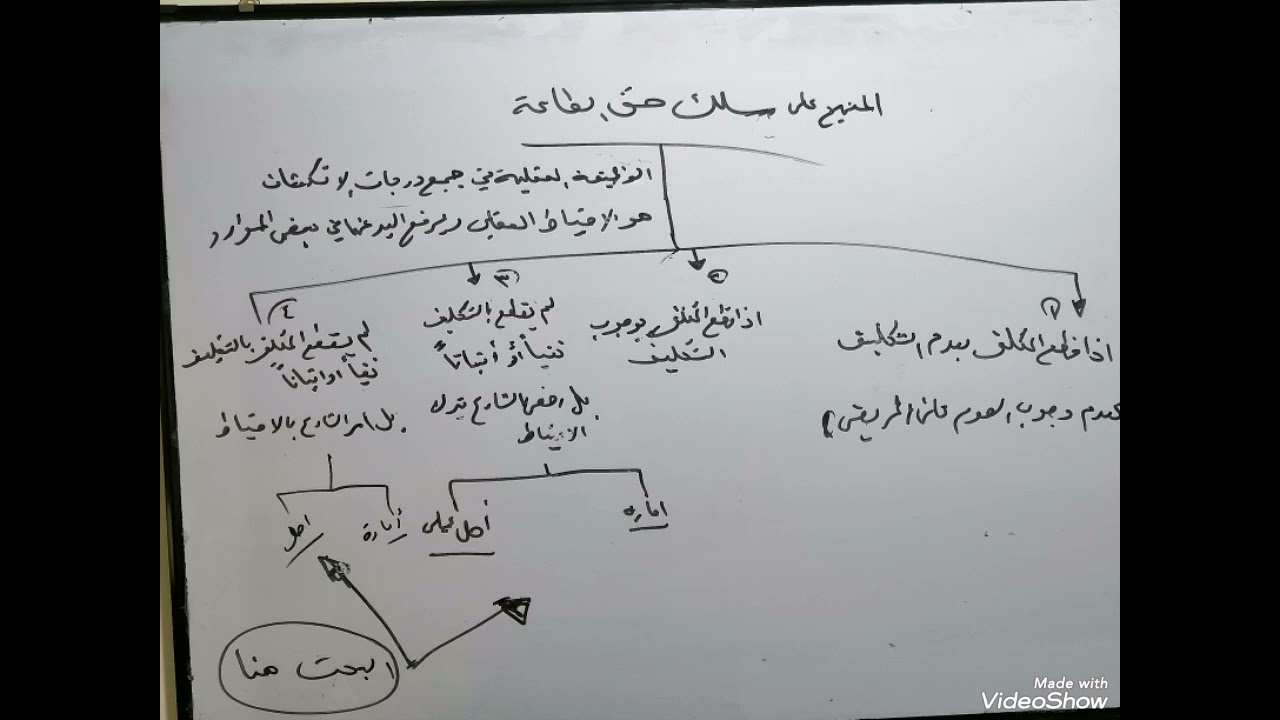 المنهج على مسلك حق الطاعة
الوظيفة العقلية في جميع درجات الانكشاف
هو الاحتياط العقلي ويرفع اليد عنها في بعض الموارد
١
اذا قطع المكلف بعدم التكليف
كعدم وجوب الصوم على المريض
٢
اذا قطع المكلف بوجوب
التكليف
٣
لم يقطع بالتكليف
نفياً أو أثباتاً
بل رخص الشارع بترك
الاحتياط
امارة
أصل عملي
٤
لم يقطع المكلف بالتكليف
نفياً او اثباتاً
بل امر الشارع بالاحتياط
أمارة
اصل
البحث هنا
Made with
VideoShow